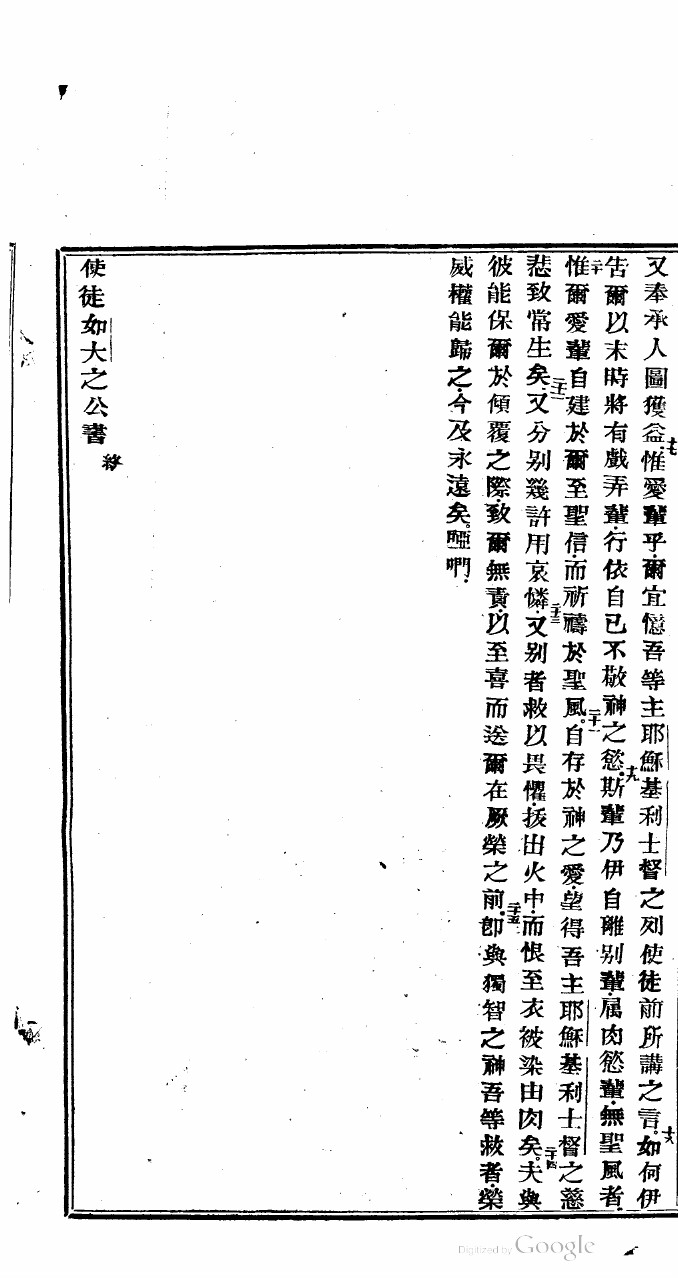 又奉承人圖獲益.十七惟愛輩乎.爾宜憶吾等主耶穌基利士督之列使徒前所講之言。十八如何伊
告爾以末時將有戲弄輩.行依自己不敬神之慾.十九斯輩乃伊自離别輩.属肉慾輩.無聖風者.
二十惟爾愛輩自建於爾至聖信.而祈禱於聖風。二十一自存於神之愛.望得吾主耶穌基利士督之慈
悲致常生矣.二十二又分别幾許用哀憐.二十三又别者救以畏懼.拔出火中.而恨至衣被染由肉矣。二十四夫與
彼能保爾於傾覆之際.致爾無責.以至喜而送爾在厥榮之前.二十五卽與獨智之神吾等救者.榮
威權能歸之.今及永遠矣。啞吪.
使徒如大之公書 終
Digitized by Google